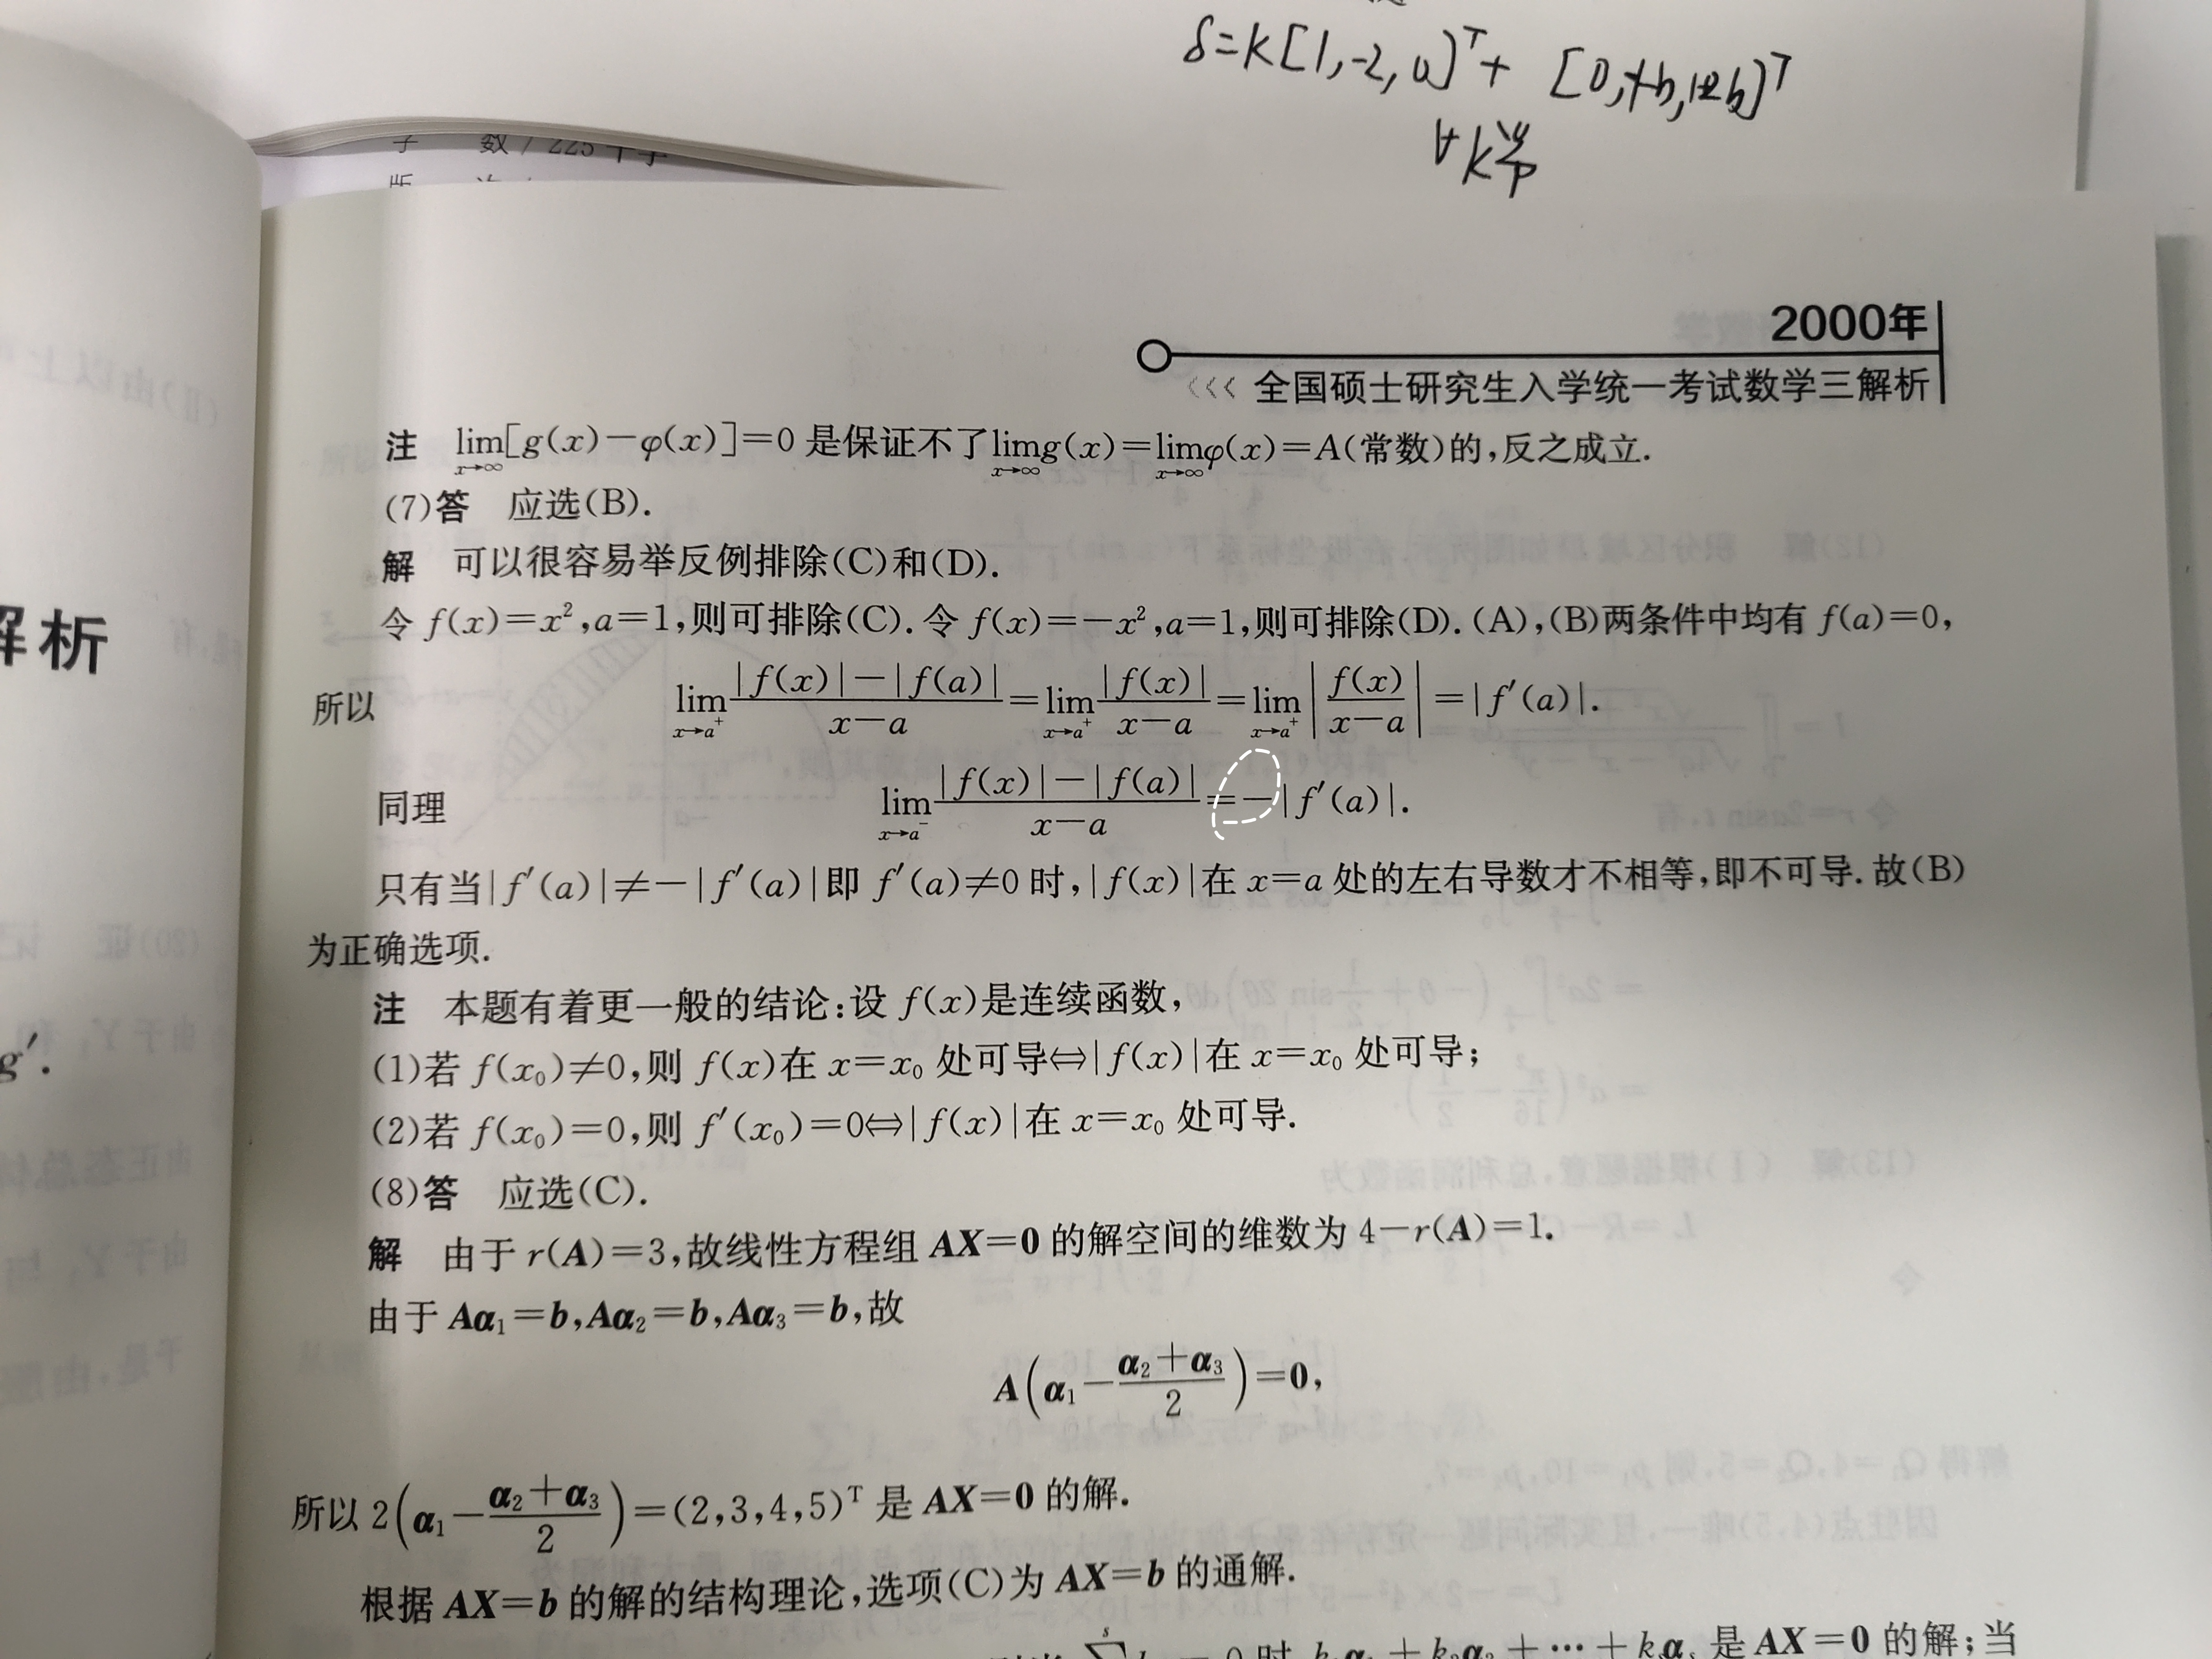 δ=k[1,-2,0]ᵀ+
∀k
数/225千字
版
2000年
<<< 全国硕士研究生入学统一考试数学三解析
注 lim_{x→∞}[g(x)−φ(x)]=0 是保证不了 lim_{x→∞}g(x)=lim_{x→∞}φ(x)=A(常数)的,反之成立.
(7)答 应选(B).
解 可以很容易举反例排除(C)和(D).
令 f(x)=x²,a=1,则可排除(C).令 f(x)=−x²,a=1,则可排除(D).(A),(B)两条件中均有 f(a)=0,
所以 lim_{x→a⁺} (|f(x)|−|f(a)|)/(x−a)=lim_{x→a⁺} |f(x)|/(x−a)=lim_{x→a⁺} |f(x)/(x−a)|=|f′(a)|.
同理 lim_{x→a⁻} (|f(x)|−|f(a)|)/(x−a)=−|f′(a)|.
只有当|f′(a)|≠−|f′(a)|即 f′(a)≠0 时,|f(x)|在 x=a 处的左右导数才不相等,即不可导.故(B)
为正确选项.
注 本题有着更一般的结论:设 f(x)是连续函数,
(1)若 f(x₀)≠0,则 f(x)在 x=x₀ 处可导⇔|f(x)|在 x=x₀ 处可导;
(2)若 f(x₀)=0,则 f′(x₀)=0⇔|f(x)|在 x=x₀ 处可导.
(8)答 应选(C).
解 由于 r(A)=3,故线性方程组 AX=0 的解空间的维数为 4−r(A)=1.
由于 Aα₁=b,Aα₂=b,Aα₃=b,故
A(α₁−(α₂+α₃)/2)=0,
所以 2(α₁−(α₂+α₃)/2)=(2,3,4,5)ᵀ 是 AX=0 的解.
根据 AX=b 的解的结构理论,选项(C)为 AX=b 的通解.
是 AX=0 的解;当
解析
g′.